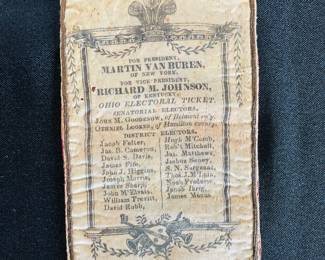 FOR PRESIDENT,
MARTIN VAN BUREN,
OF NEW YORK.
FOR VICE PRESIDENT,
RICHARD M. JOHNSON,
OF KENTUCKY.
OHIO ELECTORAL TICKET.
SENATORIAL ELECTORS.
JOHN M. GOODENOW, of Belmont co'y.
OTHNIEL LOOKER, of Hamilton county.
DISTRICT ELECTORS.
Jacob Felter,
Jas. B. Cameron,
David S. Davis,
James Fife,
John J. Higgins,
Joseph Morris,
James Sharp
John M'Elvain,
William Trevitt,
David Robb,
Hugh M'Comb,
Rob't Mitchell,
Jas. Matthews,
Joshua Seney,
S. N. Sargent,
Thos. J. M'Lain,
Noah Frederic
Jacob Ihrig,
James Means